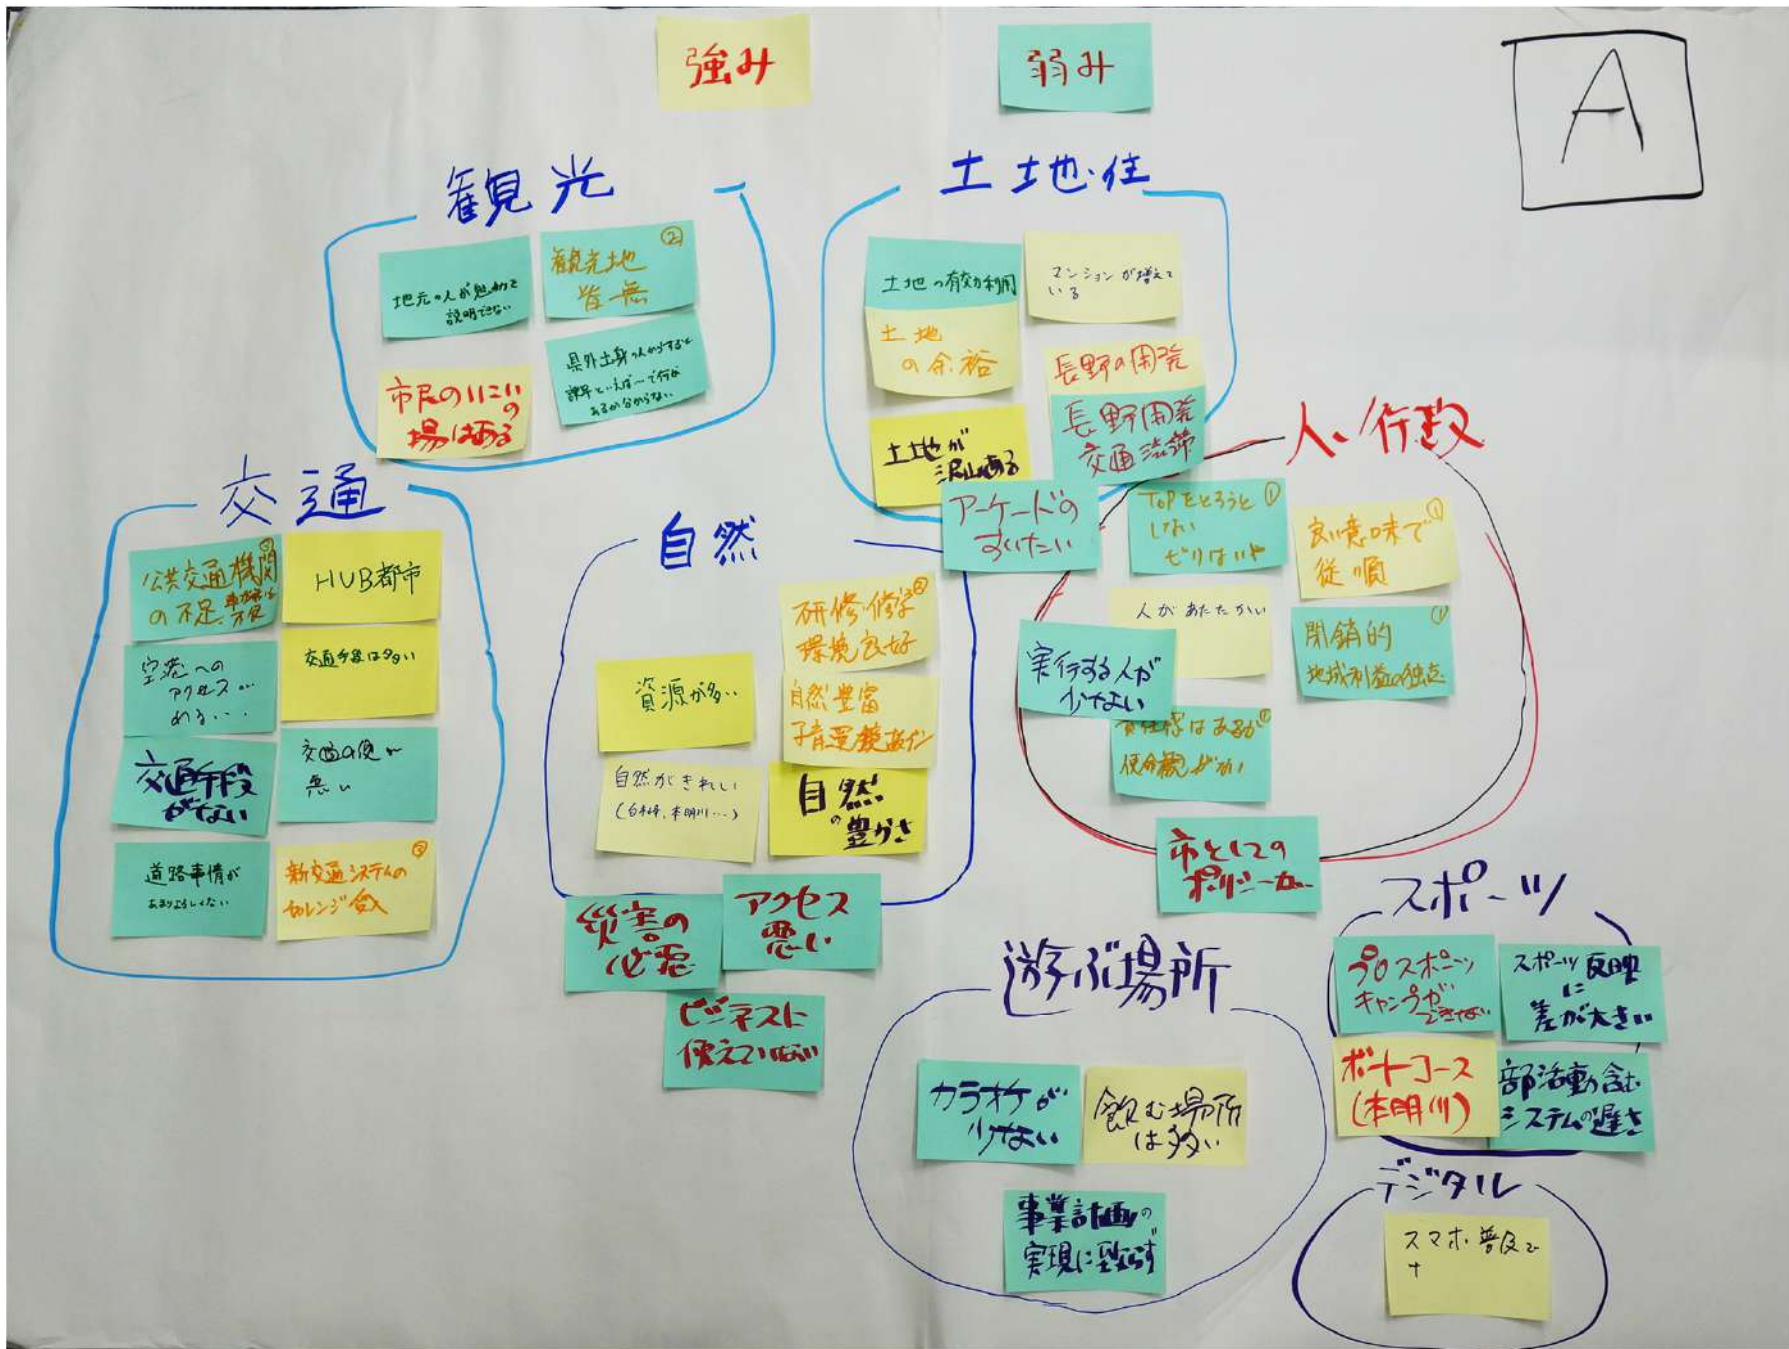 強み
弱み
A
観光
地元の人が魅力を
説明できない
観光地 ②
皆無
市民のいこいの
場はある
県外出身の人からすると
諫早といえば〜で何が
あるか分からない
土地・住
土地の有効利用
マンションが増えて
いる
土地
の余裕
長野の開発
土地が
沢山ある
長野開発
交通渋滞
アーケードの
すいたい
人・行政
TOPをとろうと ①
しない
ビリはいや
良い意味で ①
従順
人があたたかい
実行する人が
少ない
閉鎖的 ①
地域利益の独占
責任感はあるが ①
使命観がない
市としての
ポリシー
交通
公共交通機関
の不足
HUB都市
空港への
アクセス…
交通手段は多い
交通手段
がない
交通の便が
悪い
道路事情が
あまりよろしくない
新交通システムの
チャレンジ
自然
研修・修学 ②
環境良好
資源が多い
自然豊富
自然がきれい
(白木峰、本明川…)
自然
の豊かさ
災害の
心配
アクセス
悪い
ビジネスに
使えていない
遊ぶ場所
カラオケが
少ない
飲む場所
は多い
事業計画の
実現に至らず
スポーツ
プロスポーツ
キャンプが
できない
スポーツ反映
に
差が大きい
ボートコース
(本明川)
部活動含む
システムの遅さ
デジタル
スマホ普及で